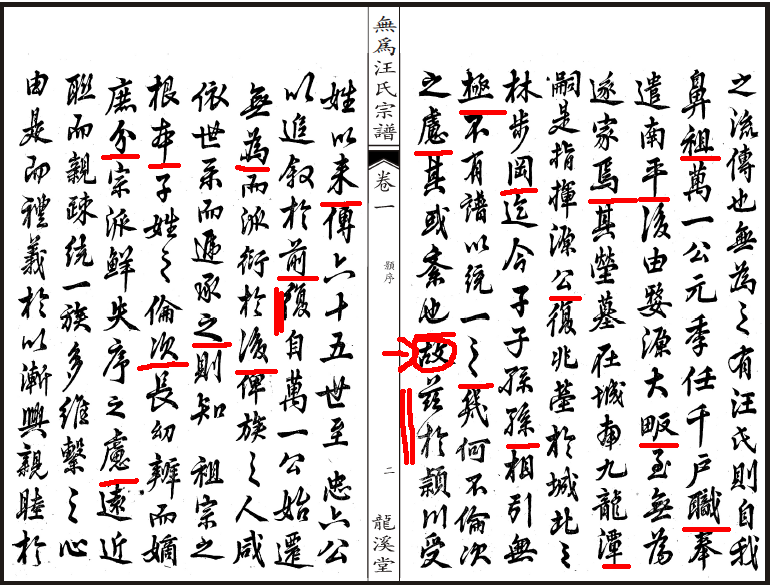 之流傳也無為之有汪氏則自我
鼻祖萬一公元季任千戶職奉
遣南平後由婺源大畈至無為
遂家焉其塋墓在城南九龍潭
嗣是指揮源公復兆塋於城北之
林步岡迄今子子孫孫相引無
極不有譜以統一之幾何不倫次
之慮其或紊也故茲於潁川受
無為汪氏宗譜
卷一
類序
二
龍溪堂
姓以來傳六十五世至忠六公
以追叙於前復自萬一公始遷
無為而派衍於後俾族之人咸
依世系而遞承之則知祖宗之
根本子姓之倫次長幼辨而嫡
庶分宗派鮮失序之慮遠近
聯而親疎統一族多維繫之心
由是而禮義於以漸興親睦於